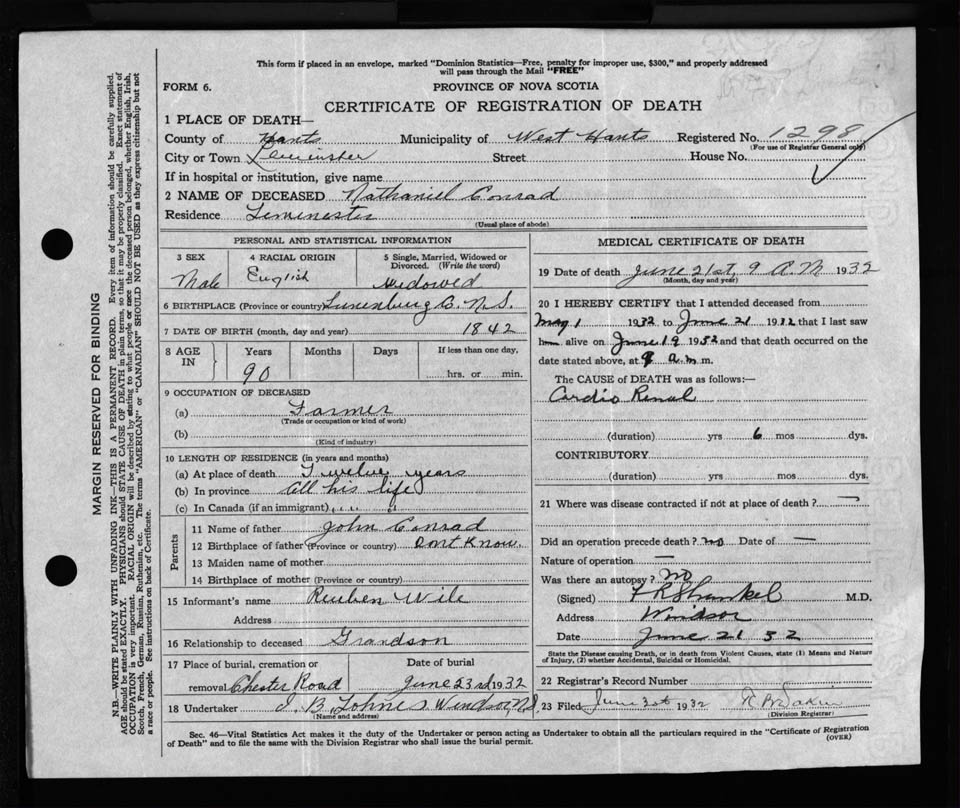 This form if placed in an envelope, marked "Dominion Statistics—Free, penalty for improper use, $300," and properly addressed
will pass through the Mail "FREE"
FORM 6.
PROVINCE OF NOVA SCOTIA
CERTIFICATE OF REGISTRATION OF DEATH
1 PLACE OF DEATH—
County of Hants Municipality of West Hants Registered No. 1298
(For use of Registrar General only)
City or Town Leminster Street House No.
If in hospital or institution, give name
2 NAME OF DECEASED Nathaniel Conrad
Residence Leminester
(Usual place of abode)
PERSONAL AND STATISTICAL INFORMATION
3 SEX 4 RACIAL ORIGIN 5 Single, Married, Widowed or
Divorced. (Write the word)
Male English Widowed
6 BIRTHPLACE (Province or country) Lunenburg Co. N.S.
7 DATE OF BIRTH (month, day and year) 1842
8 AGE IN Years Months Days If less than one day,
90 hrs. or min.
9 OCCUPATION OF DECEASED
(a) Farmer
(Trade or occupation or kind of work)
(b)
(Kind of industry)
10 LENGTH OF RESIDENCE (in years and months)
(a) At place of death Twelve years
(b) In province all his life
(c) In Canada (if an immigrant) " "
Parents
11 Name of father John Conrad
12 Birthplace of father (Province or country) Dont Know.
13 Maiden name of mother
14 Birthplace of mother (Province or country)
15 Informant's name Reuben Wile
Address
16 Relationship to deceased Grandson
17 Place of burial, cremation or Date of burial
removal Chester Road June 23rd 1932
18 Undertaker J. B. Windsor, N.S.
(Name and address)
MEDICAL CERTIFICATE OF DEATH
19 Date of death June 21st, 9 A.M 1932
(Month, day and year)
20 I HEREBY CERTIFY that I attended deceased from
May 1 1932 to June 21 1932 that I last saw
him alive on June 19 1932 and that death occurred on the
date stated above, at 9 a.m m.
The CAUSE OF DEATH was as follows:—
Cardio Renal
(duration) yrs 6 mos dys.
CONTRIBUTORY
(duration) yrs. mos. dys.
21 Where was disease contracted if not at place of death? —
Did an operation precede death? no Date of —
Nature of operation —
Was there an autopsy? No
(Signed) M.D.
Address Windsor
Date June 21 32
State the Disease causing Death, or in death from Violent Causes, state (1) Means and Nature
of Injury, (2) whether Accidental, Suicidal or Homicidal.
22 Registrar's Record Number
23 Filed June 1932
(Division Registrar)
Sec. 46—Vital Statistics Act makes it the duty of the Undertaker or person acting as Undertaker to obtain all the particulars required in the "Certificate of Registration
of Death" and to file the same with the Division Registrar who shall issue the burial permit. (OVER)
MARGIN RESERVED FOR BINDING
N.B.—WRITE PLAINLY WITH UNFADING INK—THIS IS A PERMANENT RECORD. Every item of information should be carefully supplied.
AGE should be stated EXACTLY. PHYSICIANS should STATE CAUSE OF DEATH in plain terms, so that it may be properly classified. Exact statement of
OCCUPATION is very important. RACIAL ORIGIN will be described by stating to what people or race the deceased person belonged, whether English, Irish,
Scotch, French, German, Russian, Ruthenian, etc. The terms "AMERICAN" or "CANADIAN" SHOULD NOT BE USED as they express citizenship but not
a race or people. See instructions on back of Certificate.